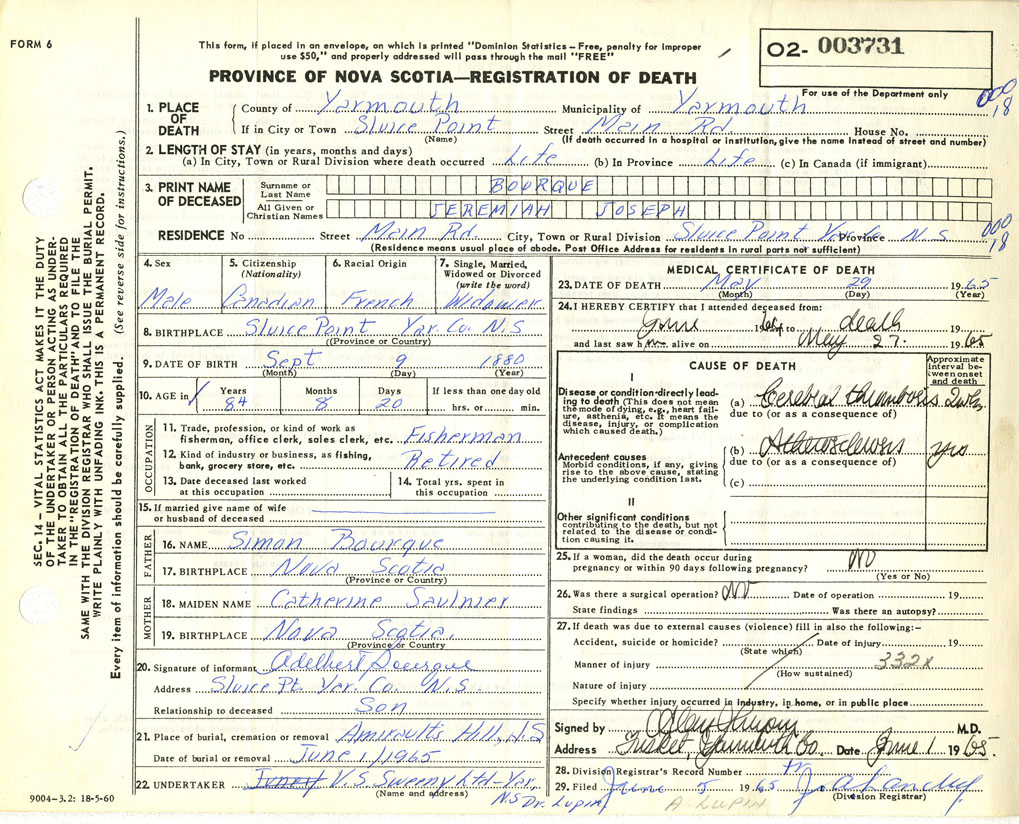 FORM 6
This form, if placed in an envelope, on which is printed "Dominion Statistics – Free, penalty for improper
use $50," and properly addressed will pass through the mail "FREE"
O2- 003731
For use of the Department only
PROVINCE OF NOVA SCOTIA—REGISTRATION OF DEATH
000
18
1. PLACE OF DEATH
County of Yarmouth Municipality of Yarmouth
If in City or Town Sluice Point Street Main Rd. House No.
(Name) (If death occurred in a hospital or institution, give the name instead of street and number)
2. LENGTH OF STAY (in years, months and days)
(a) In City, Town or Rural Division where death occurred Life (b) In Province Life (c) In Canada (if immigrant)
3. PRINT NAME OF DECEASED
Surname or Last Name BOURQUE
All Given or Christian Names JEREMIAH JOSEPH
RESIDENCE No Street Main Rd. City, Town or Rural Division Sluice Point Province N.S
000
18
(Residence means usual place of abode. Post Office Address for residents in rural parts not sufficient)
4. Sex Male
5. Citizenship (Nationality) Canadian
6. Racial Origin French
7. Single, Married, Widowed or Divorced (write the word) Widower
8. BIRTHPLACE Sluice Point Yar. Co. N.S
(Province or Country)
9. DATE OF BIRTH Sept 9 1880
(Month) (Day) (Year)
10. AGE in Years 84 Months 8 Days 20 If less than one day old hrs. or min.
OCCUPATION
11. Trade, profession, or kind of work as fisherman, office clerk, sales clerk, etc. Fisherman
12. Kind of industry or business, as fishing, bank, grocery store, etc. Retired
13. Date deceased last worked at this occupation
14. Total yrs. spent in this occupation
15. If married give name of wife or husband of deceased
FATHER
16. NAME Simon Bourque
17. BIRTHPLACE Nova Scotia
(Province or Country)
MOTHER
18. MAIDEN NAME Catherine Saulnier
19. BIRTHPLACE Nova Scotia.
(Province or Country)
20. Signature of informant Adelbert Bourque
Address Sluice Pt. Yar. Co. N.S
Relationship to deceased Son
21. Place of burial, cremation or removal Amiraults Hill, N.S
Date of burial or removal June 1/1965
22. UNDERTAKER V.S. Sweeny Ltd - Yar.
(Name and address) N.S Dr. Lupin
9004-3.2: 18-5-60
MEDICAL CERTIFICATE OF DEATH
23. DATE OF DEATH May 29 1965
(Month) (Day) (Year)
24. I HEREBY CERTIFY that I attended deceased from:
June 1964 to death 19
and last saw him alive on May 27. 1965
CAUSE OF DEATH
Approximate interval between onset and death
I
Disease or condition directly leading to death (This does not mean the mode of dying, e.g., heart failure, asthenia, etc. It means the disease, injury, or complication which caused death.)
(a) Cerebral thrombosis 2 wks.
due to (or as a consequence of)
Antecedent causes
Morbid conditions, if any, giving rise to the above cause, stating the underlying condition last.
(b) Atherosclerosis yrs
due to (or as a consequence of)
(c)
II
Other significant conditions
contributing to the death, but not related to the disease or condition causing it.
25. If a woman, did the death occur during pregnancy or within 90 days following pregnancy? NO
(Yes or No)
26. Was there a surgical operation? NO Date of operation 19
State findings Was there an autopsy?
27. If death was due to external causes (violence) fill in also the following:-
Accident, suicide or homicide? Date of injury 19
(State which)
Manner of injury 332x
(How sustained)
Nature of injury
Specify whether injury occurred in industry, in home, or in public place
Signed by M.D.
Address Tusket, Yarmouth Co. Date June 1 1965.
28. Division Registrar's Record Number
29. Filed June 5 1965
(Division Registrar)
A. LUPIN
SEC. 14 – VITAL STATISTICS ACT MAKES IT THE DUTY
OF THE UNDERTAKER OR PERSON ACTING AS UNDER-
TAKER TO OBTAIN ALL THE PARTICULARS REQUIRED
IN THE "REGISTRATION OF DEATH" AND TO FILE THE
SAME WITH THE DIVISION REGISTRAR WHO SHALL ISSUE THE BURIAL PERMIT.
WRITE PLAINLY WITH UNFADING INK. THIS IS A PERMANENT RECORD.
Every item of information should be carefully supplied. (See reverse side for instructions.)